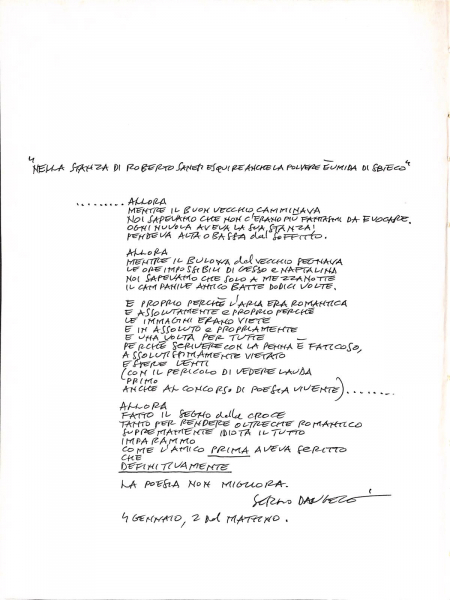 "NELLA STANZA DI ROBERTO SANESI ESQUIRE ANCHE LA POLVERE È UMIDA DI SBIECO"
......... ALLORA
MENTRE IL BUON VECCHIO CAMMINAVA
NOI SAPEVAMO CHE NON C'ERANO PIÙ FANTASMI DA EVOCARE.
OGNI NUVOLA AVEVA LA SUA STANZA:
PENDEVA ALTA O BASSA dal SOFFITTO.
ALLORA
MENTRE IL BULOVA del VECCHIO SEGNAVA
LE ORE IMPOSSIBILI DI GESSO e NAFTALINA
NOI SAPEVAMO CHE SOLO A MEZZANOTTE
IL CAMPANILE ANTICO BATTE DODICI VOLTE.
E PROPRIO PERCHÈ L'ARIA ERA ROMANTICA
E ASSOLUTAMENTE e PROPRIO PERCHÈ
LE IMMAGINI ERANO VIETE
E IN ASSOLUTO e PROPRIAMENTE
E UNA VOLTA PER TUTTE
PERCHÈ SCRIVERE CON LA PENNA È FATICOSO,
ASSOLUTISSIMAMENTE VIETATO
ESSERE LENTI
(CON IL PERICOLO DI VEDERE LAUDA
PRIMO
ANCHE AL CONCORSO DI POESIA VIVENTE).........
ALLORA
FATTO IL SEGNO della CROCE
TANTO PER RENDERE OLTRECHE ROMANTICO
SUPREMAMENTE IDIOTA IL TUTTO
IMPARAMMO
COME L'AMICO PRIMA AVEVA SCRITTO
CHE
DEFINITIVAMENTE
LA POESIA NON MIGLIORA.
SERGIO DANGELO
4 GENNAIO, 2 del MATTINO.